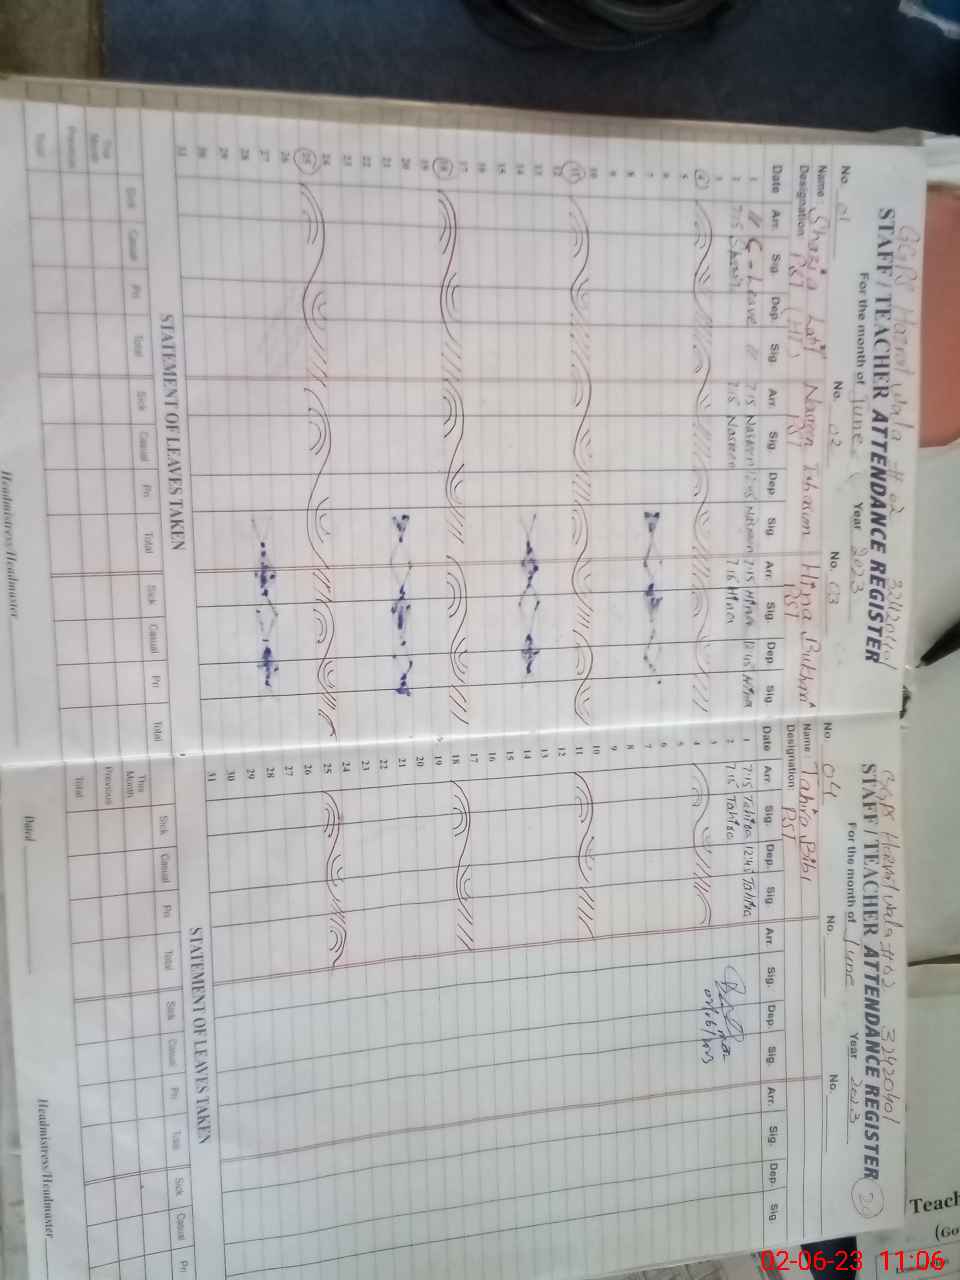 STAFF / TEACHER ATTENDANCE REGISTER
For the month of June Year 2023
No. 01 No. 02 No. 03
Name: Shazia Nasreen Hina
Designation PST PST PST
Date Arr. Sig. Dep. Sig. Arr. Sig. Dep. Sig Arr. Sig. Dep. Sig
1 11 C - Leave 11 7:15 Nasreen 12:45 Nasreen 7:15 Hina 12:45 Hina
2 7:15 Shazia 7:15 Nasreen 7:15 Hina
3
4
5
6
7
8
9
10
11
12
13
14
15
16
17
18
19
20
21
22
23
24
25
26
27
28
29
30
31
STATEMENT OF LEAVES TAKEN
Sick Casual Pri Total Sick Casual Pri Total Sick Casual Pri Total
This Month
Previous
Total
Headmistress/Headmaster
STAFF / TEACHER ATTENDANCE REGISTER
32420401
20
For the month of June Year 2023
No. 04 No. No.
Name: Tahira Bibi
Designation: PST
Date Arr. Sig. Dep. Sig Arr. Sig. Dep. Sig. Arr. Sig. Dep. Sig.
1 7:15 Tahira 12:45 Tahira
2 7:15 Tahira
3
4
5
6
7
8
9
10
11
12
13
14
15
16
17
18
19
20
21
22
23
24
25
26
27
28
29
30
31
STATEMENT OF LEAVES TAKEN
Sick Casual Pri Total Sick Casual Pri Total Sick Casual Pri
This Month
Previous
Total
Dated
Headmistress/Headmaster
Teach
(Go
02-06-23 11:06